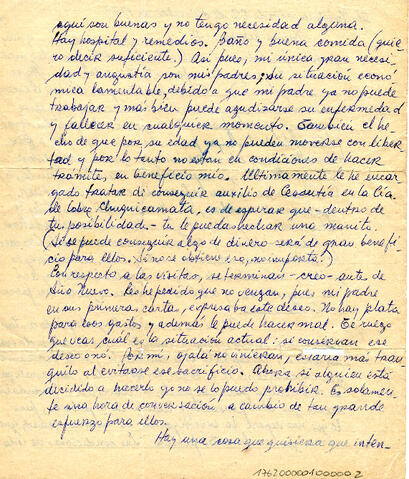 aquí son buenas y no tengo necesidad alguna.
Hay hospital y remedios. Baño y buena comida (quie-
ro decir suficiente.) Así pues, mi única gran necesi-
dad y angustia son mis padres; su situación econó-
mica lamentable, debido a que mi padre ya no puede
trabajar y más bien puede agudizarse su enfermedad
y fallecer en cualquier momento. También el he-
cho de que por su edad ya no pueden moverse con liber-
tad y por lo tanto no están en condiciones de hacer
trámite, en beneficio mío. Ultimamente le he encar-
gado tratar de conseguir auxilio de Cesantía en la Cía.
de Cobre Chuquicamata, es de esperar que - dentro de
tus posibilidad - tu le puedas hechar una manito.
(Si se puede conseguir algo de dinero será de gran benefi-
cio para ellos. Si no se obtiene eso, no importa!)
Con respecto a las visitas, se terminan - creo - antes de
Año Nuevo. Les he pedido que no vengan, pues mi padre
en sus primeras cartas, expresaba este deseo. No hay plata
para esos gastos y además le puede hacer mal. Te ruego
que veas, cuál es la situación actual: si conservan ese
deseo o no. Por mí, ojalá no vinieran, estaría más tran-
quilo al evitarse ese sacrificio. Ahora si alguien está
decidido a hacerlo yo no se lo puedo prohibir. Es solamen-
te una hora de conversación, a cambio de tan grande
esfuerzo para ellos.
Hay una cosa que quisiera que inten-
176200000100000 2